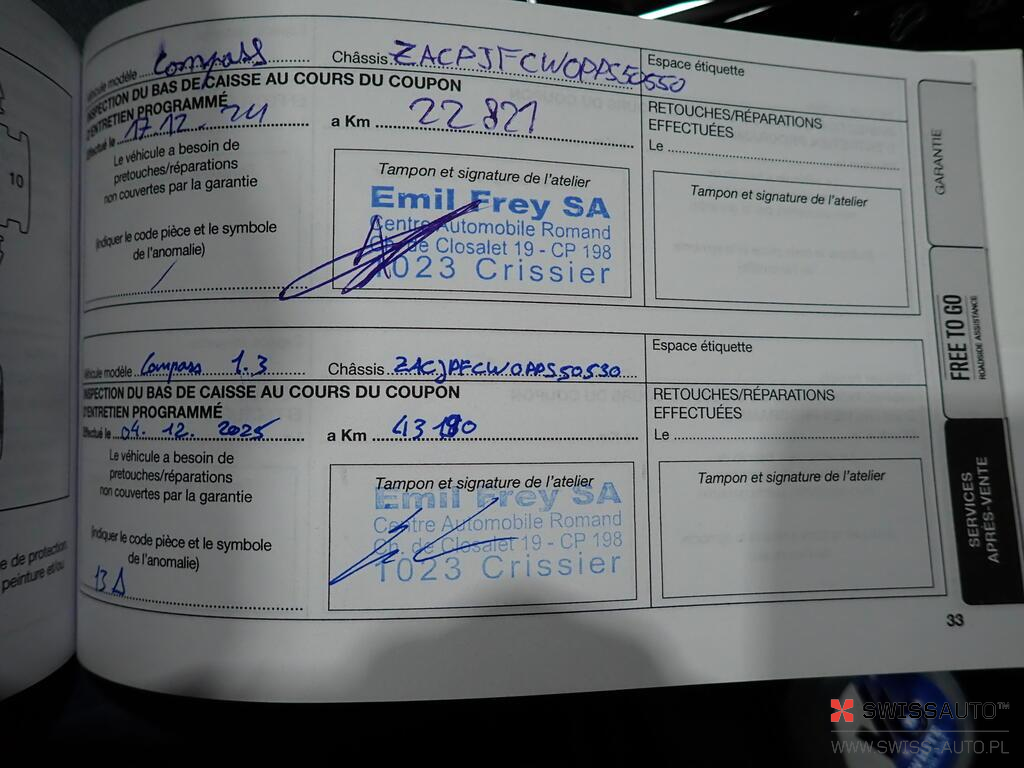 Véhicule modèle Compass Châssis ZACPJFCW0PPS50550 Espace étiquette
INSPECTION DU BAS DE CAISSE AU COURS DU COUPON
D'ENTRETIEN PROGRAMMÉ
Effectué le 17.12.24 a Km 22821
Le véhicule a besoin de
pretouches/réparations
non couvertes par la garantie
(indiquer le code pièce et le symbole
de l'anomalie)
/
Tampon et signature de l'atelier
Emil Frey SA
Centre Automobile Romand
Ch. de Closalet 19 - CP 198
1023 Crissier
RETOUCHES/RÉPARATIONS
EFFECTUÉES
Le
Tampon et signature de l'atelier
Véhicule modèle Compass 1.3 Châssis ZACJPFCW0PPS50530 Espace étiquette
INSPECTION DU BAS DE CAISSE AU COURS DU COUPON
D'ENTRETIEN PROGRAMMÉ
Effectué le 04.12.2025 a Km
Le véhicule a besoin de
pretouches/réparations
non couvertes par la garantie
(indiquer le code pièce et le symbole
de l'anomalie)
13 Δ
Tampon et signature de l'atelier
Emil Frey SA
Centre Automobile Romand
Ch. de Closalet 19 - CP 198
1023 Crissier
RETOUCHES/RÉPARATIONS
EFFECTUÉES
Le
Tampon et signature de l'atelier
10
e de protection
peinture et/ou
GARANTIE
FREE TO GO
ROADSIDE ASSISTANCE
SERVICES
APRÈS-VENTE
33
SWISSAUTO™
WWW.SWISS-AUTO.PL